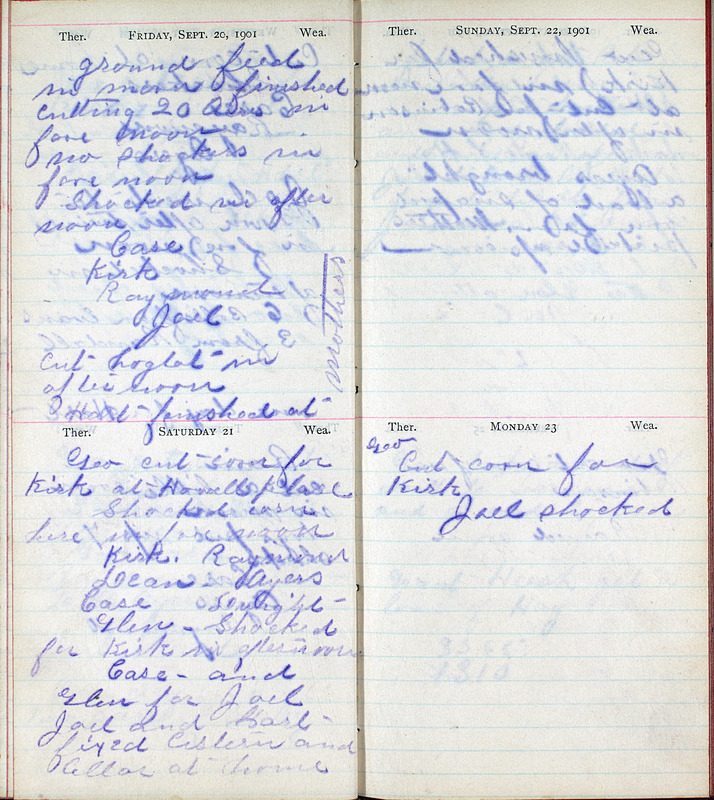 Ther. FRIDAY, SEPT. 20, 1901 Wea.
ground feed
in morn finished
cutting 20 Acres in
fore noon
no shockers in
fore noon
Shocked in after
noon
Case
Kirk
Raymond
Joel
Cut hoglot in
after noon
Hart finished at
mothers
Ther. SATURDAY 21 Wea.
Geo cut corn for
Kirk at Howells place
Shocked corn
here in fore noon
Kirk. Raymond
Dean Ayers
Case
Glen - Shocked
for Kirk in afternoon
Case - and
Glen for Joel
Joel and Hart
fixed Cistern and
Cellar at home
Ther. SUNDAY, SEPT. 22, 1901 Wea.
Ther. MONDAY 23 Wea.
Geo
Cut corn for
Kirk
Joel shocked